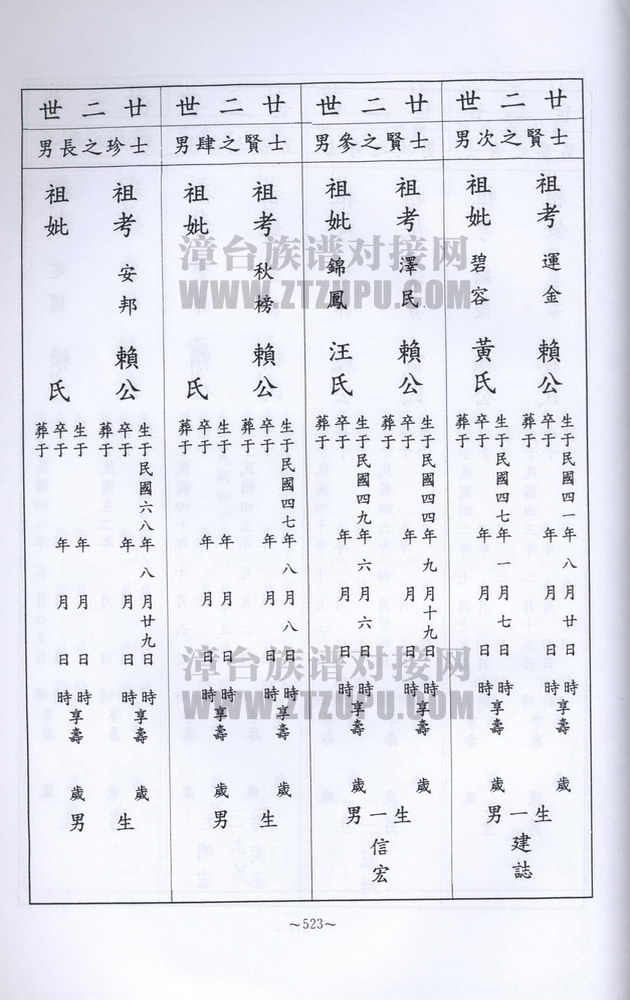 廿二世
士賢之次男
祖考 運金 賴公
生于民國四一年八月廿日時
卒于 年 月 日 時享壽 歲
葬于
祖妣 碧容 黃氏
生于民國四七年一月七日時
卒于 年 月 日 時享壽 歲
葬于
生一男
建誌
廿二世
士賢之參男
祖考 澤民 賴公
生于民國四四年九月十九日時
卒于 年 月 日 時享壽 歲
葬于
祖妣 錦鳳 汪氏
生于民國四九年六月六日時
卒于 年 月 日 時享壽 歲
葬于
生一男
信宏
廿二世
士賢之肆男
祖考 秋榜 賴公
生于民國四七年八月八日時
卒于 年 月 日 時享壽 歲
葬于
祖妣 氏
生于 年 月 日 時
卒于 年 月 日 時享壽 歲
葬于
生 男
廿二世
士珍之長男
祖考 安邦 賴公
生于民國六八年八月廿九日時
卒于 年 月 日 時享壽 歲
葬于
祖妣 氏
生于 年 月 日 時
卒于 年 月 日 時享壽 歲
葬于
生 男
漳台族谱对接网
WWW.ZTZUPU.COM
漳台族谱对接网
WWW.ZTZUPU.COM
~523~